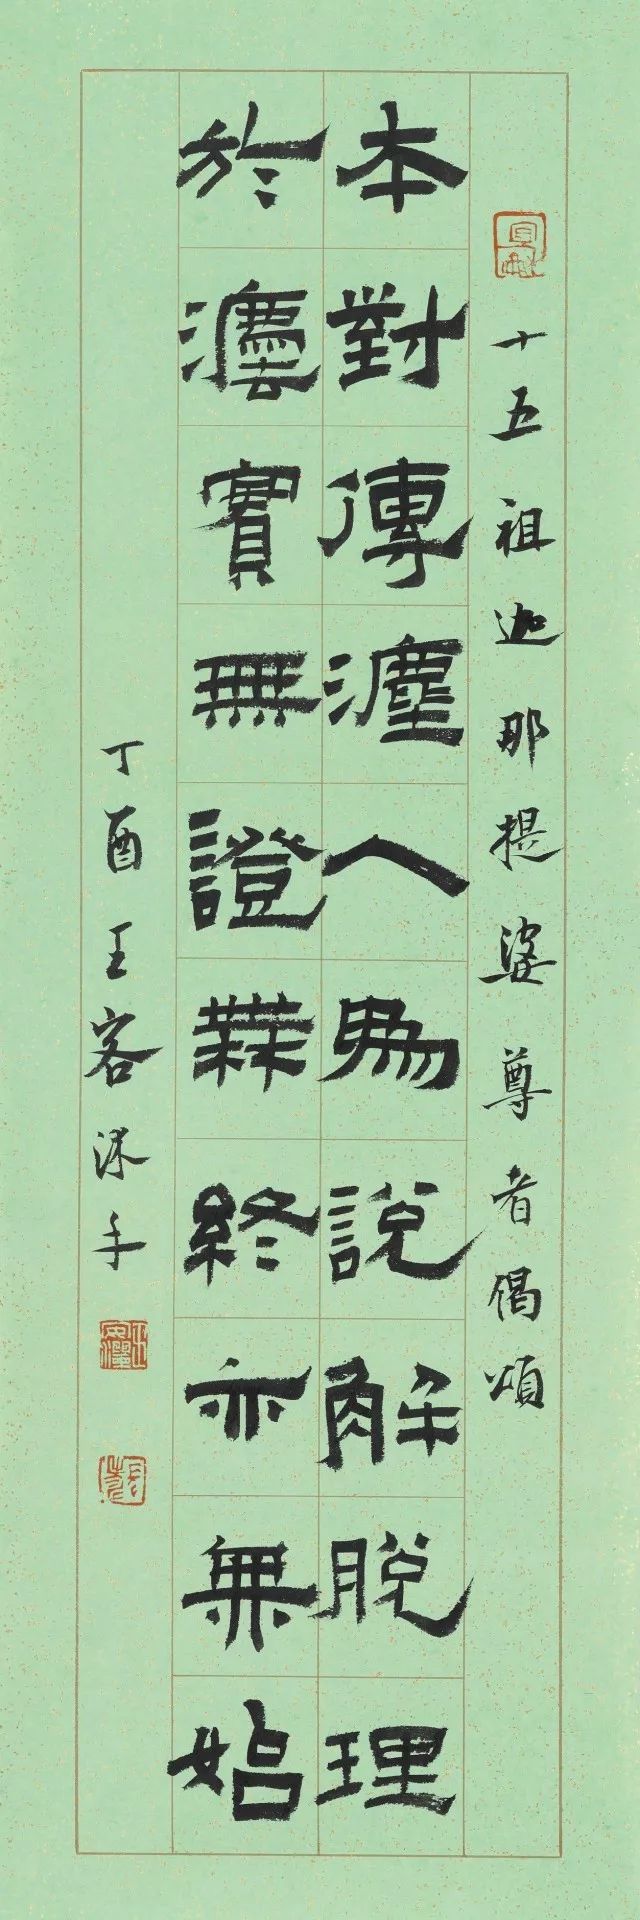 十五祖迦那提婆尊者偈頌
本對傳灋人爲說解脫理
於灋實無證無終亦無始
丁酉王客沐手